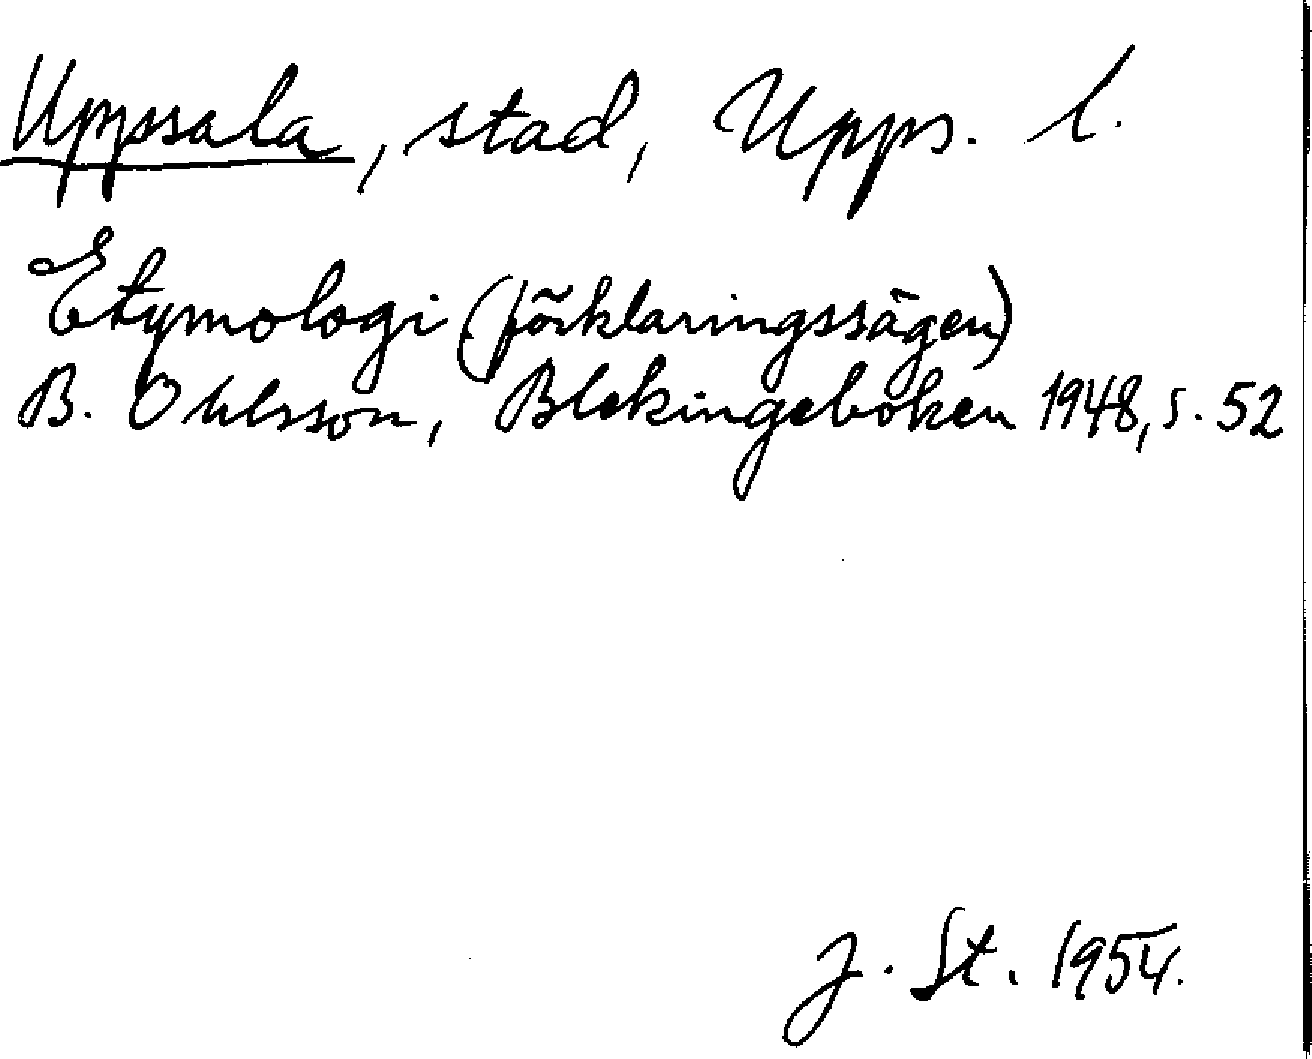 Uppsala, stad, Upps. l.
Etymologi (förklaringssägen)
B. Ohlsson, Blekingeboken 1948, s. 52
J. St. 1954.